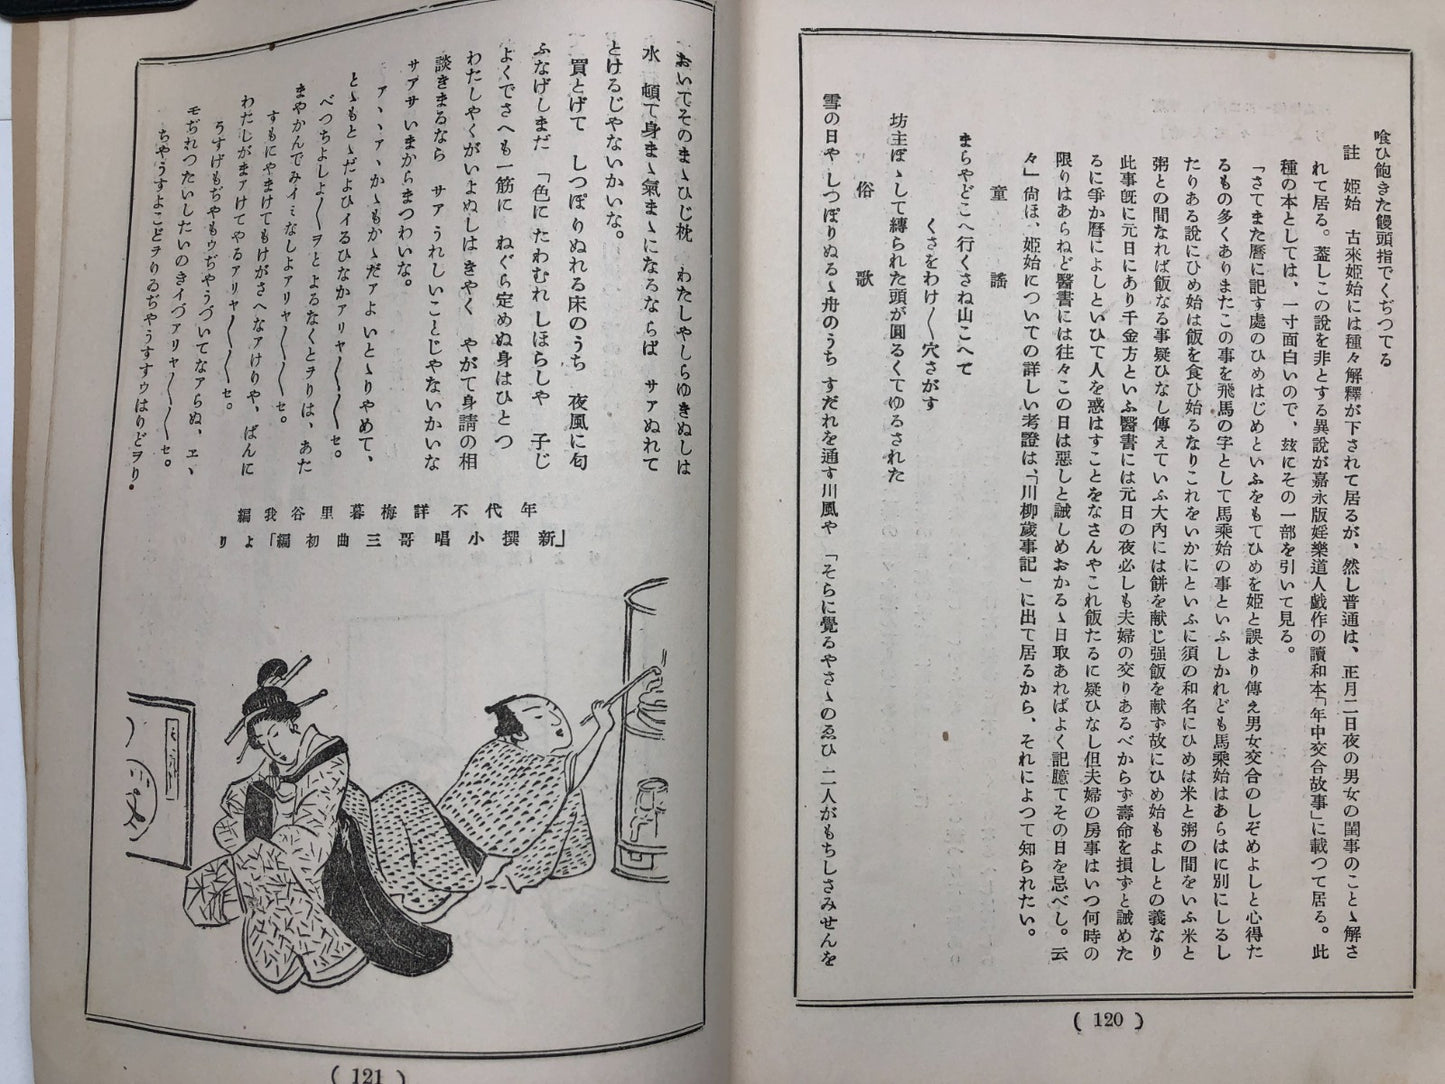 喰ひ飽きた饅頭指でくぢつてる
註　姫始　古來姫始には種々解釋が下されて居るが、然し普通は、正月二日夜の男女の閨事のことゝ解さ
れて居る。蓋しこの說を非とする異說が嘉永版婬樂道人戲作の讀和本「年中交合故事」に載つて居る。此
種の本としては、一寸面白いので、玆にその一部を引いて見る。
「さてまた曆に記す處のひめはじめといふをもてひめを姫と誤まり傳え男女交合のしぞめよしと心得た
るもの多くありまたこの事を飛馬の字として馬乘始の事といふしかれども馬乘始はあらはに別にしるし
たりある說にひめ始は飯を食ひ始るなりこれをいかにといふに須の和名にひめは米と粥の間をいふ米と
粥との間なれば飯なる事疑ひなし傳えていふ大內には餅を献じ强飯を献ず故にひめ始もよしとの義なり
此事旣に元日にあり千金方といふ醫書には元日の夜必しも夫婦の交りあるべからず壽命を損ずと誡めた
るに爭か曆によしといひて人を惑はすことをなさんやこれ飯たるに疑ひなし但夫婦の房事はいつ何時の
限りはあらねど醫書には往々この日は惡しと誡しめおかるゝ日取あればよく記臆てその日を忌べし。云
々」尙ほ、姫始についての詳しい考證は、「川柳歲事記」に出て居るから、それによつて知られたい。
童　謠
まらやどこへ行くさね山こへて
くさをわけ〳〵穴さがす
坊主ぼゝして縛られた頭が圓るくてゆるされた
俗　歌
雪の日や しつぽりぬるゝ舟のうち すだれを通す川風や 「そらに覺るやさゝのゑひ 二人がもちしさみせんを
(120)
おいてそのまゝひじ枕　わたしやしらゆきぬしは
水　頓て身まゝ氣まゝになるならば　サアぬれて
とけるじやないかいな。
買とげて　しつぽりぬれる床のうち　夜風に匂
ふなげしまだ　「色にたわむれ しほらしや　子じ
よくでさへも一筋に　ねぐら定めぬ身はひとつ
わたしやくがいよぬしは きやく　やがて身請の相
談きまるなら　サア うれしいことじやないかいな
サアサ いまからまつわいな。
アヽヽアヽかゝもかゝだアよ いとゝりやめて、
とゝもとゝだよひイるひなかアリヤ〳〵〳〵セ。
べつちよしよ〳〵ヲとよるなくとヲりは、あた
まやかんでみイミなしよアリヤ〳〵〳〵セ。
すもにやまけてもけがさへなアけりや、ばんに
わたしがまアけてやるアリヤ〳〵〳〵セ。
うすげもぢやもウぢやうづいてなアらぬ、エヽ
モぢれつたいしたいのきイづアリヤ〳〵〳〵セ。
ちやうすよこどヲりゐぢやうすすゥはりどヲり。
年代不詳梅暮里谷我編
「新撰小唱哥三曲初編」より
(121)